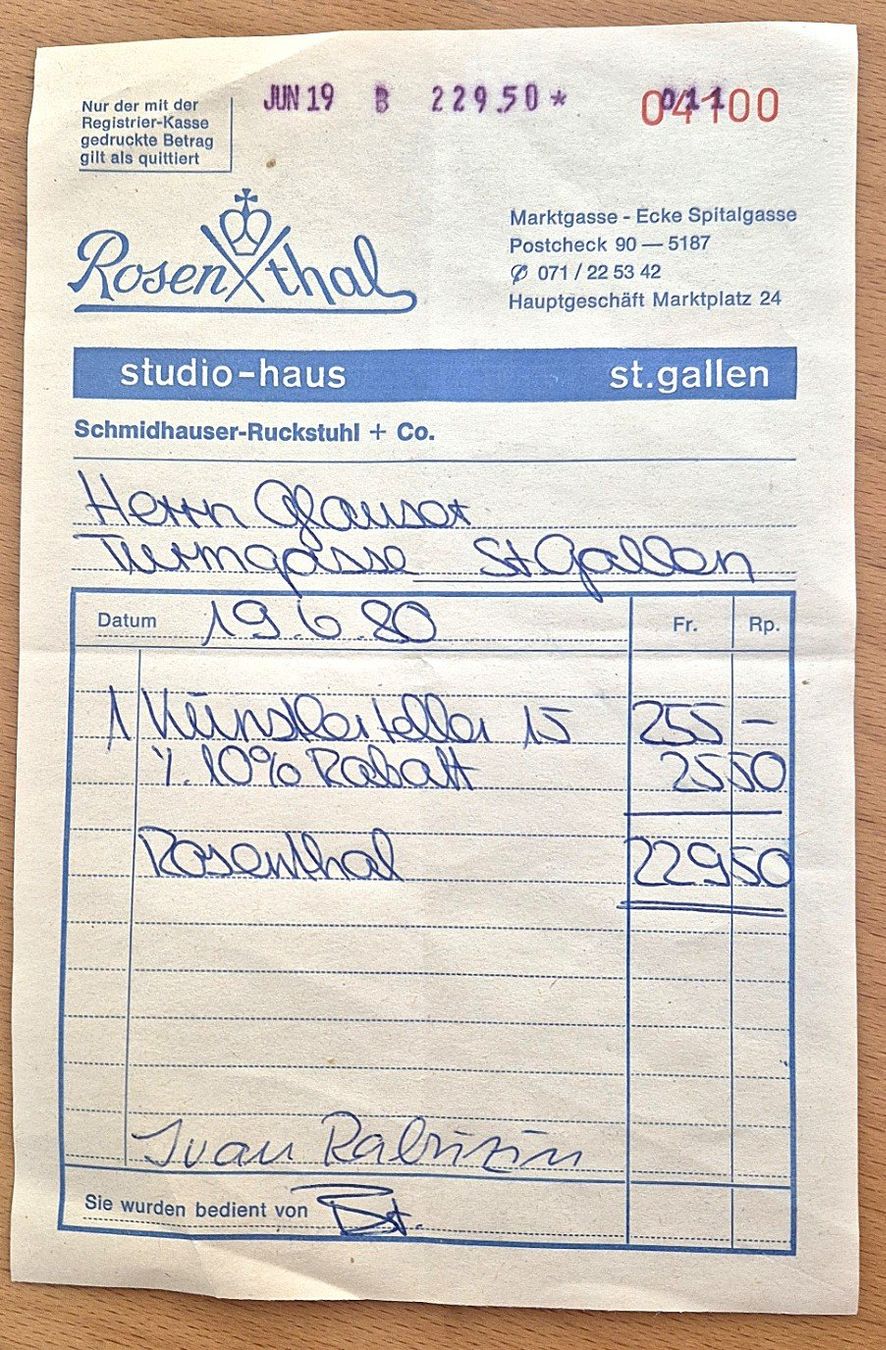 JUN 19 B 229.50 * 011
04100
Nur der mit der
Registrier-Kasse
gedruckte Betrag
gilt als quittiert
Rosenthal
Marktgasse - Ecke Spitalgasse
Postcheck 90 — 5187
✆ 071 / 22 53 42
Hauptgeschäft Marktplatz 24
studio-haus st.gallen
Schmidhauser-Ruckstuhl + Co.
Herrn Glauser
Turmgasse St Gallen
Datum 19.6.80 Fr. Rp.
1 Künstlerteller 15 255 –
./. 10% Rabatt 25 50
Rosenthal 229 50
Ivan Rabuzin
Sie wurden bedient von